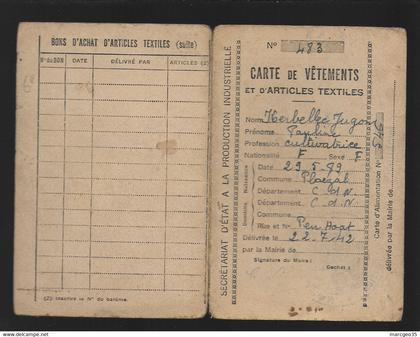 BONS D'ACHAT D'ARTICLES TEXTILES (suite)
N° du BON DATE DÉLIVRÉ PAR ARTICLES (2)
(2) Inscrire le N° du barème.
SECRÉTARIAT D'ÉTAT A LA PRODUCTION INDUSTRIELLE
N° 483
CARTE DE VÊTEMENTS
ET D'ARTICLES TEXTILES
Nom Kerbellec Jugon
Prénoms Pauline
Profession cultivatrice
Nationalité F Sexe F
Naissance
Date 29.5.99
Commune Ploezal
Département C.d.N.
Domicile
Département C.d.N.
Commune
Rue et N° Pen Hoat
Délivrée le 22.7.42
par la Mairie de
Signature du Maire : Cachet :
Carte d'Alimentation N°
délivrée par la Mairie de